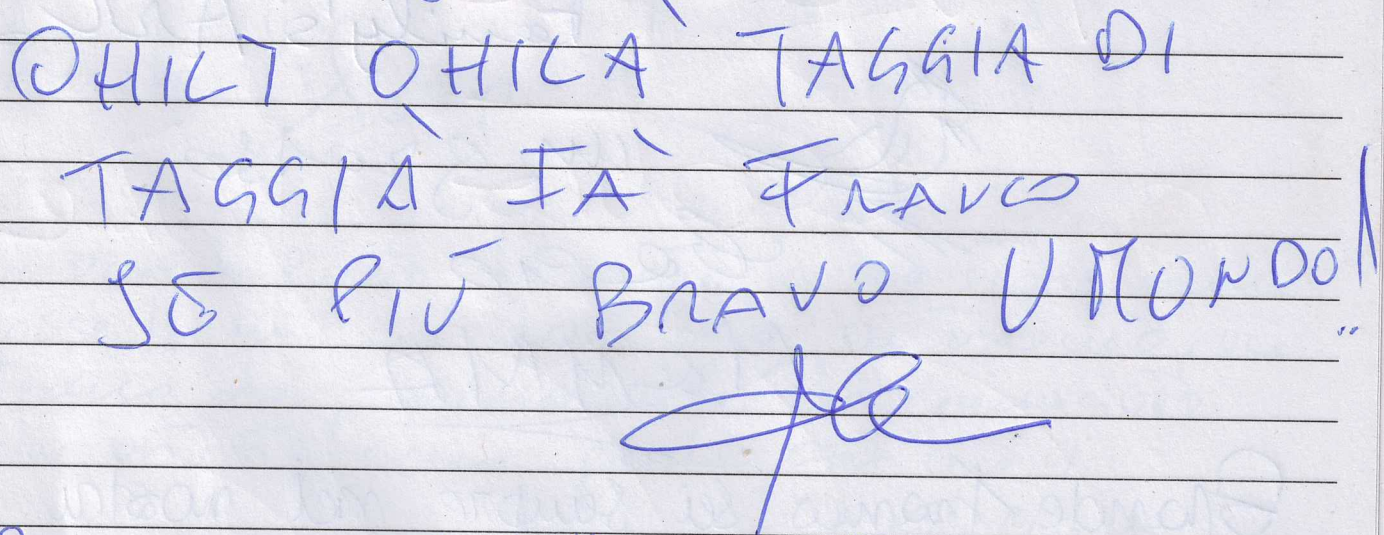 OHILÌ OHILÀ TAGGIA DI
TAGGIÀ FÀ FRANCO
SÈ PIÙ BRAVO U MONDO!